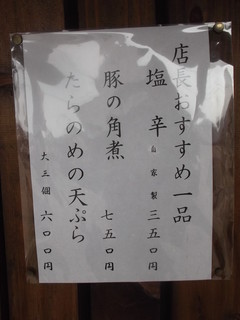 店長おすすめ一品
塩辛 自家製 三五〇円
豚の角煮 七五〇円
たらのめの天ぷら
大三個 六〇〇円